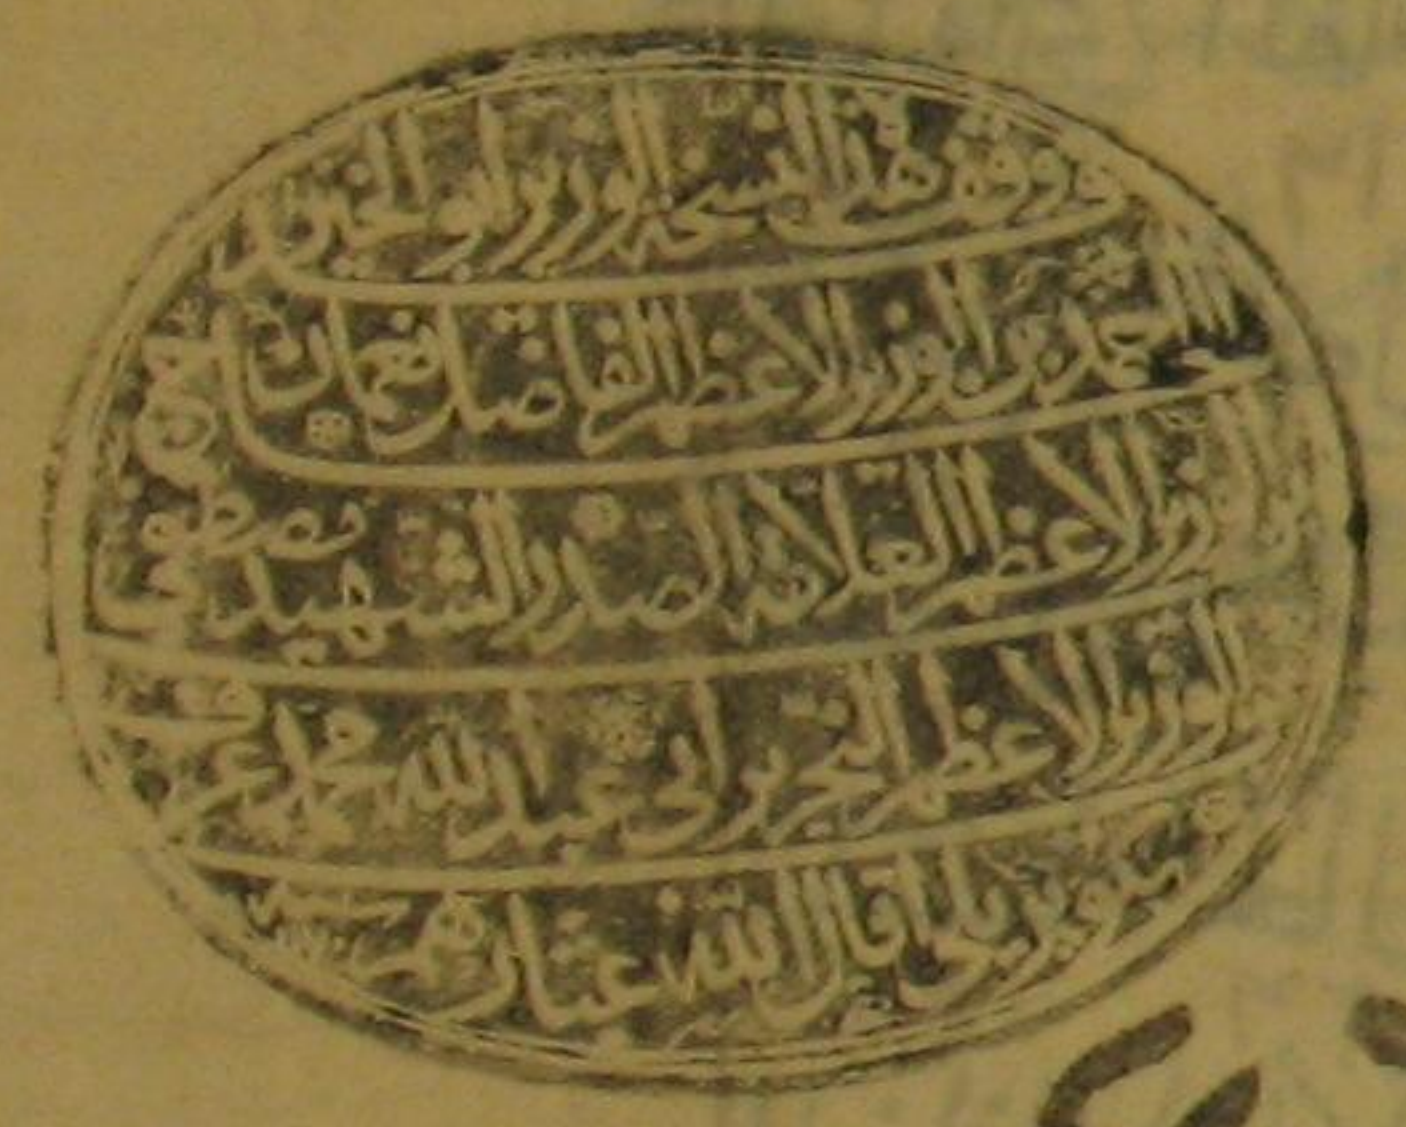 و وقف هذا النسخة الوزير ابو الخير
احمد بن الوزير الاعظم الفاضل نعمان بن
الوزير الاعظم العلامة الصدر الشهيد مصطفى
الوزير الاعظم النحرير ابي عبد الله محمد عرف
بكوپريلي اقال الله عثارهم